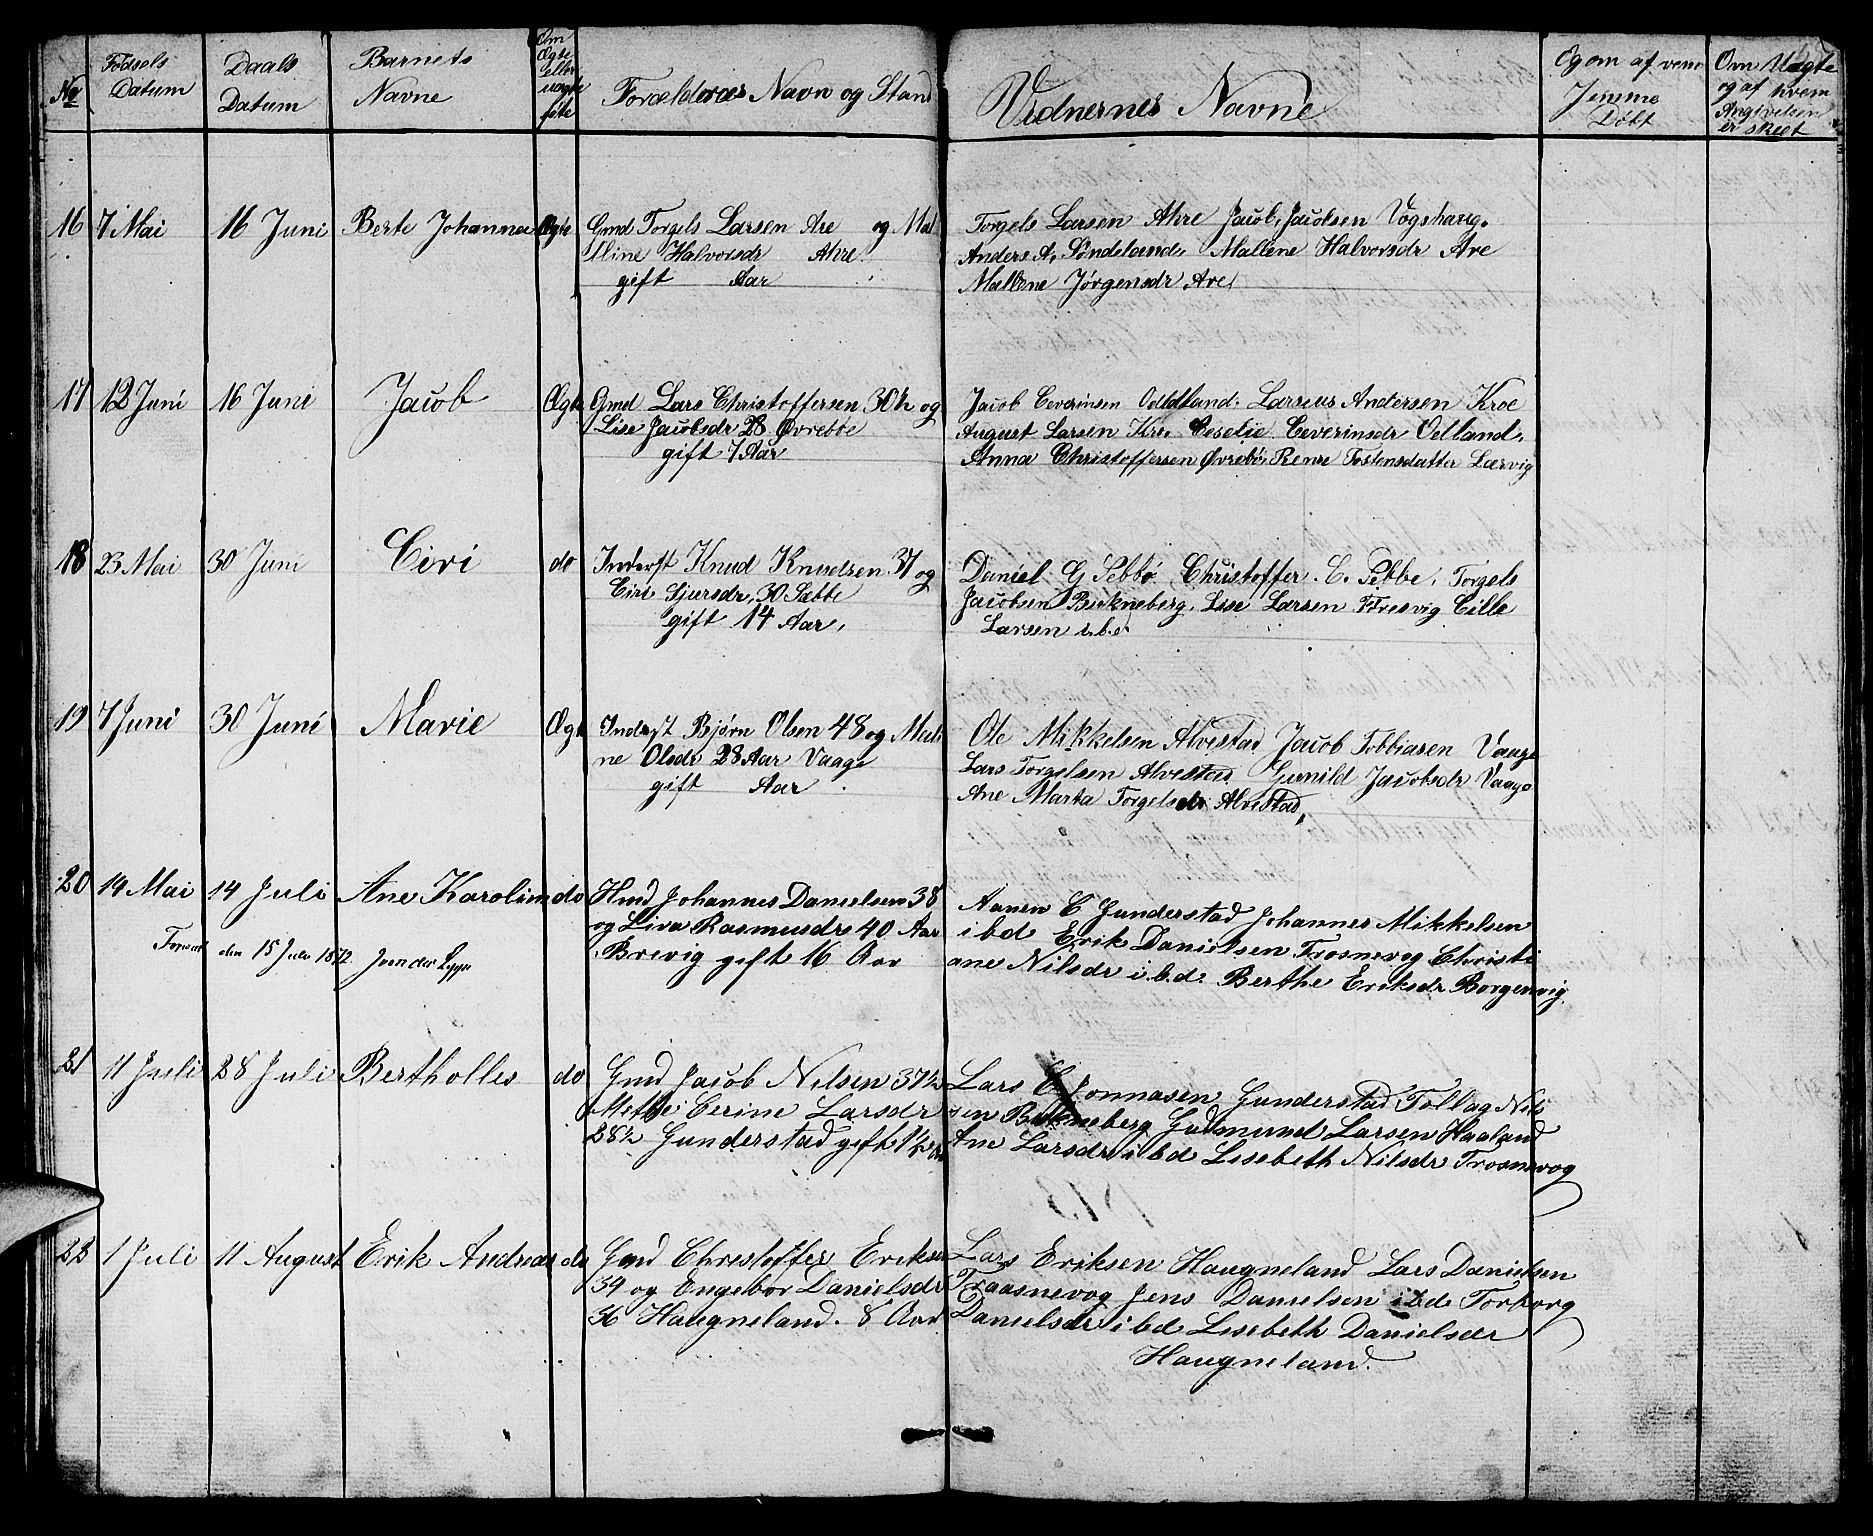 No
Fødsels
Datum
Daabs
Datum
Barnets
Navne
Om
Ægte
eller
uægte
føte
Forældres Navn og Stand
Vidnernes Navne
Og om af vem
Jemme
Døbt
Om Uægte
og af hvem
Angivelsen
er skeet
16 7 Mai 16 Juni Berte Johanna Ægte Gmd Torgels Larsen Are og Mal
lline Halvorsdr Ahre
gift Aar
Torgels Larsen Ahre Jacob Jacobsen Vogshaug.
Anders A. Søndeland. Mallene Halvorsdr Are
Mallene Jørgensdr Are
17 12 Juni 16 Juni Jacob Ægte Gmd Lars Christoffersen 30½ og
Lise Jacobsdr 28 Øvrebbe
gift 7 Aar
Jacob Ceverinsen Larsius Andersen Kroe
August Larsen Kro. Ceselie Ceverinsdr Velland.
Anna Christoffersen Øvrebø, Rense Tostensdatter Lærvig
18 23 Mai 30 Juni Ciri do Inderst Knud Knudsen 37 og
Ciri Sjursdr. 30 Sæbbe
gift 14 Aar.
Daniel G Sebbø Christoffer C. Sebbe. Torgels
Jacobsen Birkneberg. Lise Larsen Fresvig Cille
Larsen i.b.d
19 7 Juni 30 Juni Marie Ægte Inderst Bjørn Olsen 48 og Male
ne Olsdr 28 Aar Vaage
gift Aar
Ole Mikkelsen Alvestad Jacob Tobbiasen Vaage
Lars Torgelsen Alvestad Gunild Jacobsdr Vaage
Ane Marta Torgelsdr Alvestad,
20 14 Mai 14 Juli Ane Karoline do Hmd Johannes Danielsen 38
og Liva Rasmusdr 40 Aar
Brevig gift 16 Aar
den 15 Juli 1872
Aanen C Gunderstad Johannes Mikkelsen
ibd Erik Danielsen Trosnevog Christi
ane Nilsdr i.b.d. Berthe Eriksdr Borgenvig
21 11 Juli 28 Juli Bertholles do Gmd Jacob Nilsen 37½
Mette Cerine Larsdr
28½ Gunderstad gift 1½ Aar
Lars C Jonnasen Gunderstad Tollag Nils
sen Birkneberg Gudmund Larsen Haaland
Ane Larsdr ibd Lisebeth Nilsdr Trosnevog
22 1 Juli 11 August Erik Andreas do Gmd Christoffer Eriksen
34 og Engebor Danielsdr
36 Haugneland. 8 Aar
Lars Eriksen Haugneland Lars Danielsen
Traasnevog Jens Danielsen ibd Torborg
Danielsdr ibd Lisebeth Danielsdr
Haugneland.